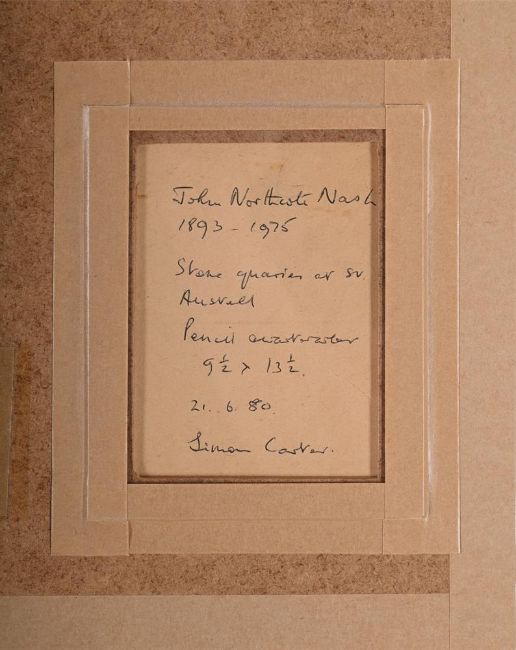 John Northcote Nash
1893 - 1975
Stone quaries at St.
Austell
Pencil & watercolour
9 1/2 x 13 1/2.
21. 6. 80.
Simon Carter.